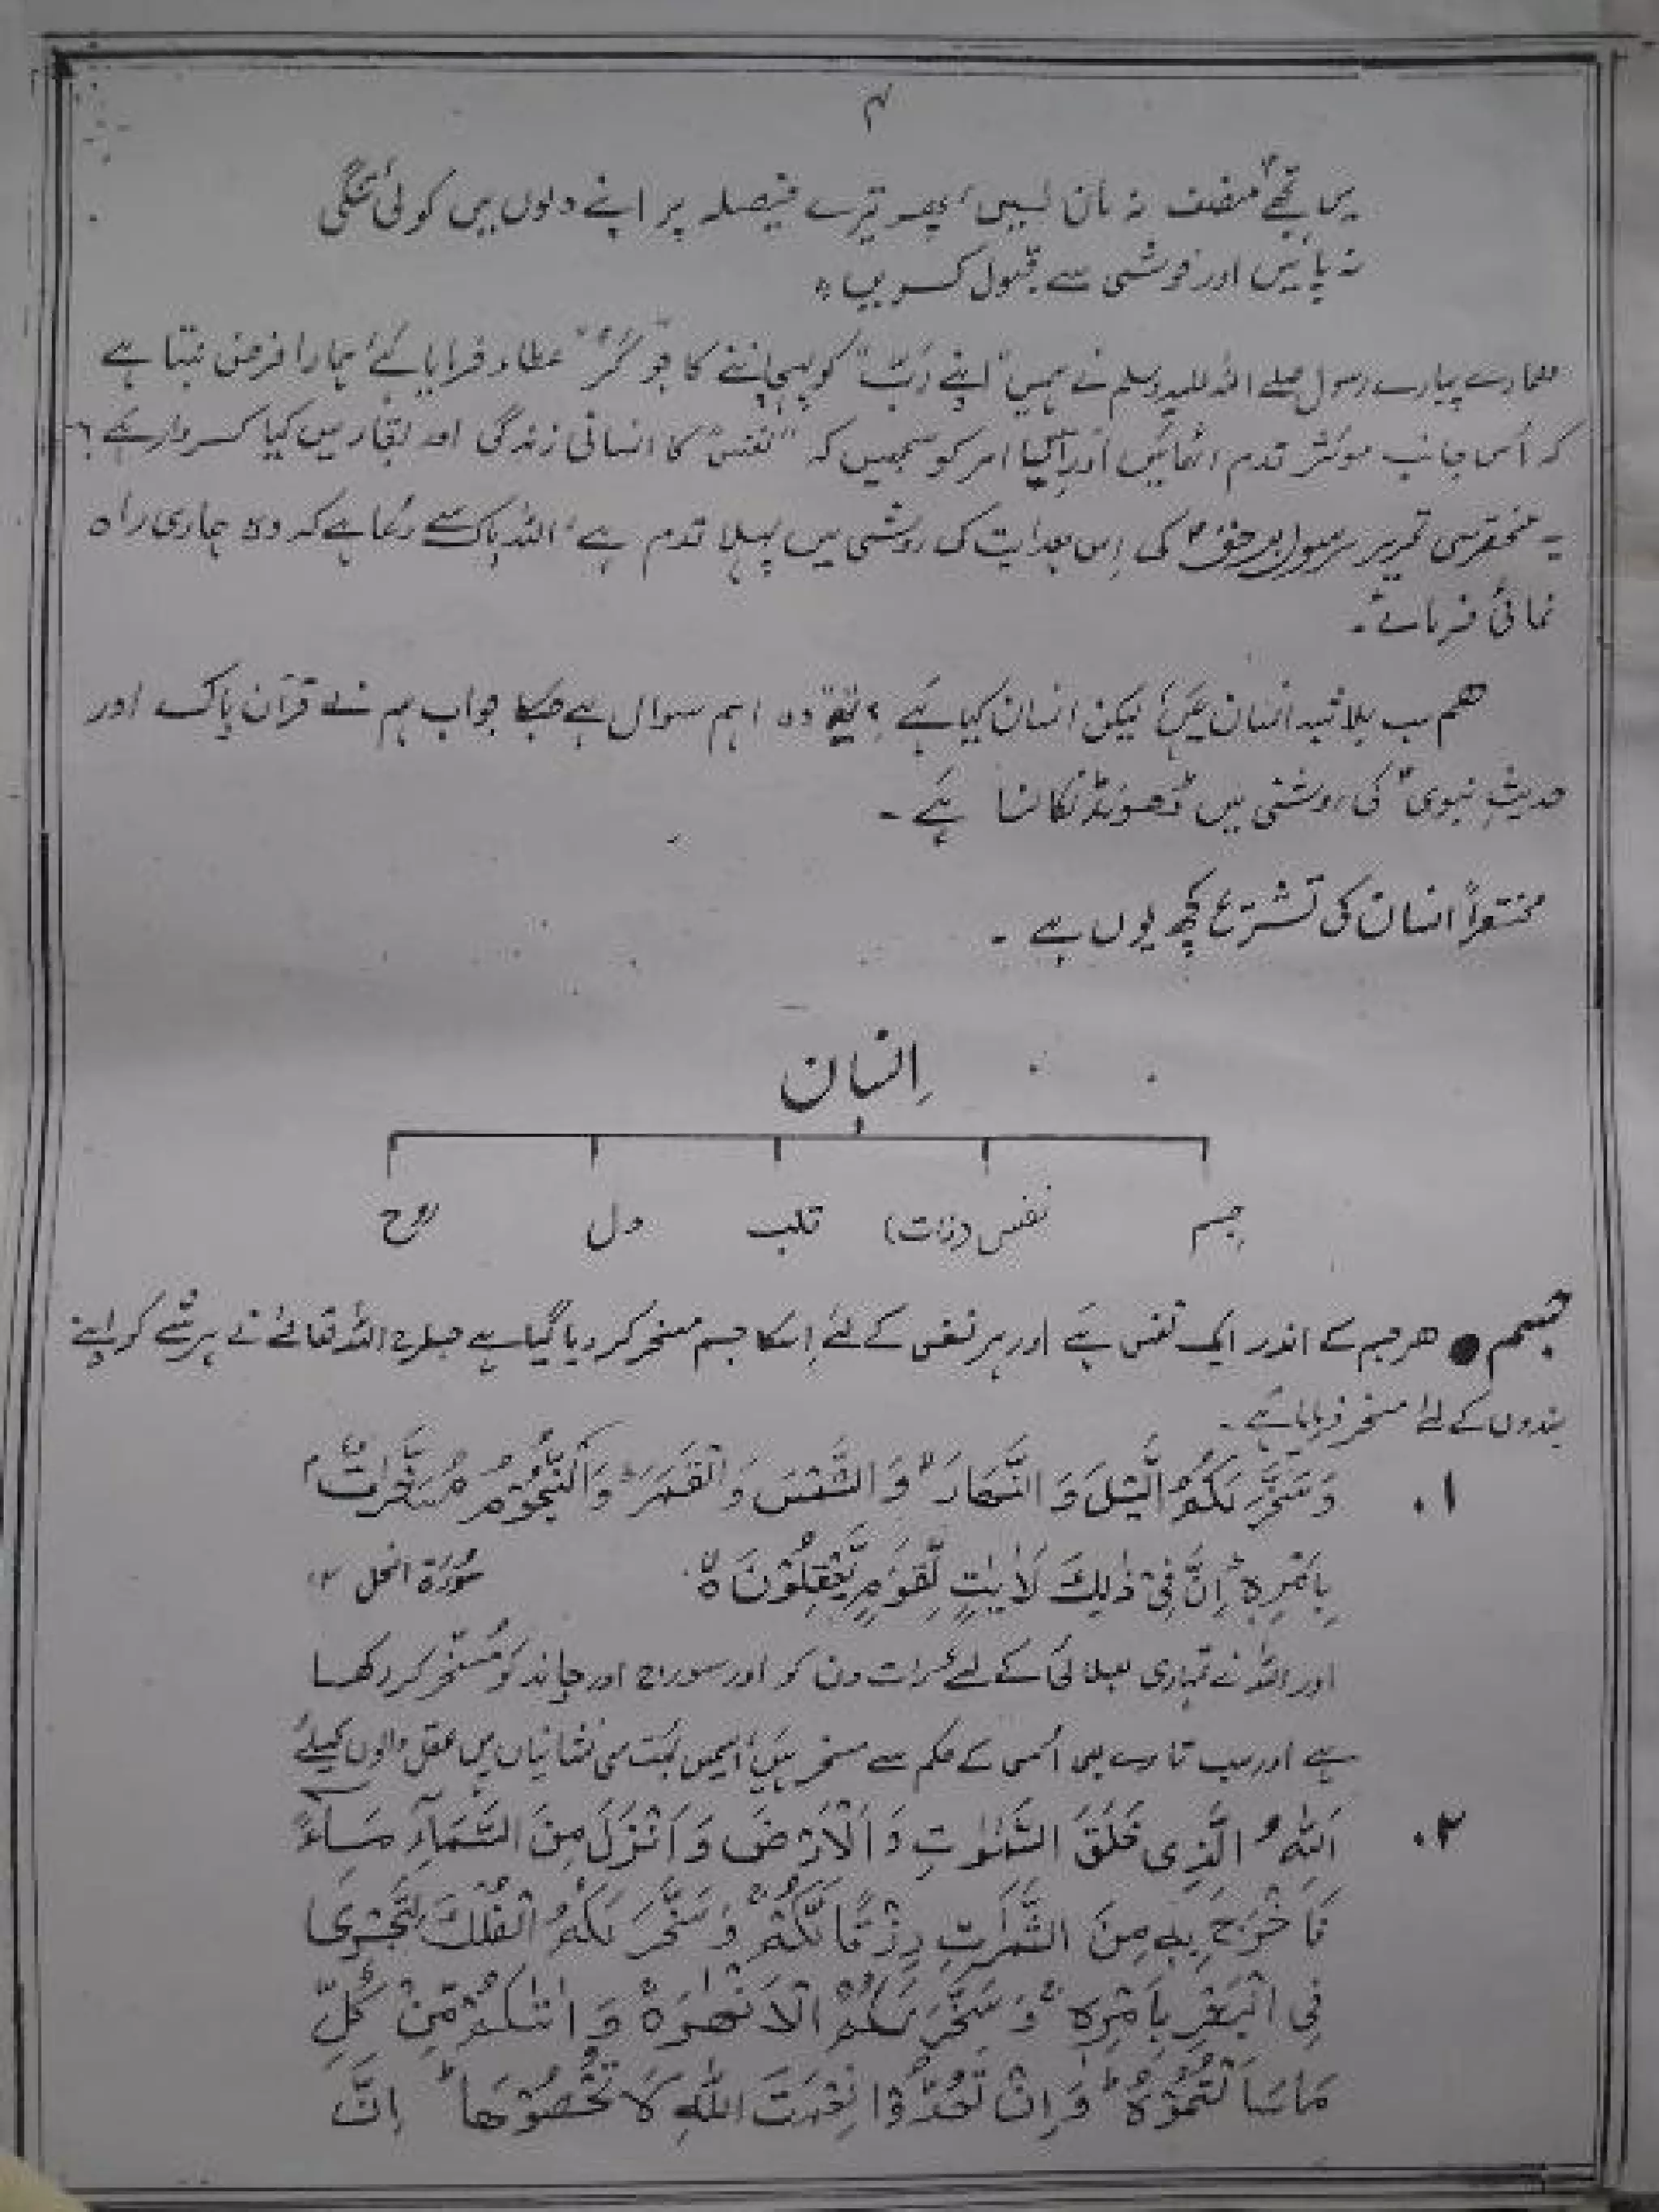 ۴
میں تجھے منصف نہ مان لیں، پھر تیرے فیصلہ پر اپنے دلوں میں کوئی تنگی
نہ پائیں اور خوشی سے قبول کریں"
ھمارے پیارے رسول صلے اللہ علیہ وسلم نے ہمیں "اپنے رَبّ" کو پہچاننے کا جو "گُر" عطاء فرمایا ہے ہمارا فرض بنتا ہے
کہ اُس جانب موئثر قدم اٹھائیں اور امر کو سمجھیں کہ "نفس" کا انسانی زندگی اور بقاء میں کیا کردار ہے؟
یہ مختصر سی تحریر رسولِ برحق ؐ کی اِس ہدایت کی روشنی میں پہلا قدم ہے، اللہ پاک سے دُعا ہے کہ وہ ہماری راہ
نمائی فرمائے۔
ھم سب بلا شبہ انسان ہیں، لیکن انسان کیا ہے؟ یہ وہ اہم سوال ہے جسکا جواب ہم نے قرآن پاک اور
حدیثِ نبوی ؐ کی روشنی میں ڈھونڈ نکالنا ہے۔
مختصراً انسان کی تشریح کچھ یوں ہے۔
اِنسان
جِسم نفس (ذات) قلب دل روح
جسم ● ھر جسم کے اندر ایک نفس ہے اور ہر نفس کے لئے اِسکا جسم مسخر کر دیا گیا ہے جسطرح اللہ تعالےٰ نے ہر شے کو اپنے
بندوں کے لئے مسخر فرمایا ہے۔
۱. وَسَخَّرَ لَكُمُ الَّيْلَ وَ النَّهَارَ ۙ وَ الشَّمْسَ وَ الْقَمَرَ ؕ وَ النُّجُوْمُ مُسَخَّرٰتٌۢ
بِاَمْرِهٖ ؕ اِنَّ فِیْ ذٰلِكَ لَاٰیٰتٍ لِّقَوْمٍ یَّعْقِلُوْنَ ۙ سُورَة النحل
اور اللہ نے تمہاری بھلائی کے لئے رات دن کو اور سورج اور چاند کو مُسَخّر کر رکھا
ہے اور سب تارے بھی اُسی کے حکم سے مسخر ہیں، اسمیں بہت سی نشانیاں ہیں عقل والوں کیلئے
۲. اَللّٰهُ الَّذِی خَلَقَ السَّمٰوٰتِ وَ الْاَرْضَ وَ اَنْزَلَ مِنَ السَّمَآءِ مَآءً
فَاَخْرَجَ بِهٖ مِنَ الثَّمَرٰتِ رِزْقًا لَّكُمْ ۚ وَ سَخَّرَ لَكُمُ الْفُلْكَ لِتَجْرِیَ
فِی الْبَحْرِ بِاَمْرِهٖ ۚ وَ سَخَّرَ لَكُمُ الْاَنْهٰرَ ۚ وَ اٰتٰىكُمْ مِّنْ كُلِّ
مَا سَاَلْتُمُوْهُ ؕ وَ اِنْ تَعُدُّوْا نِعْمَتَ اللّٰهِ لَا تُحْصُوْهَا ؕ اِنَّ